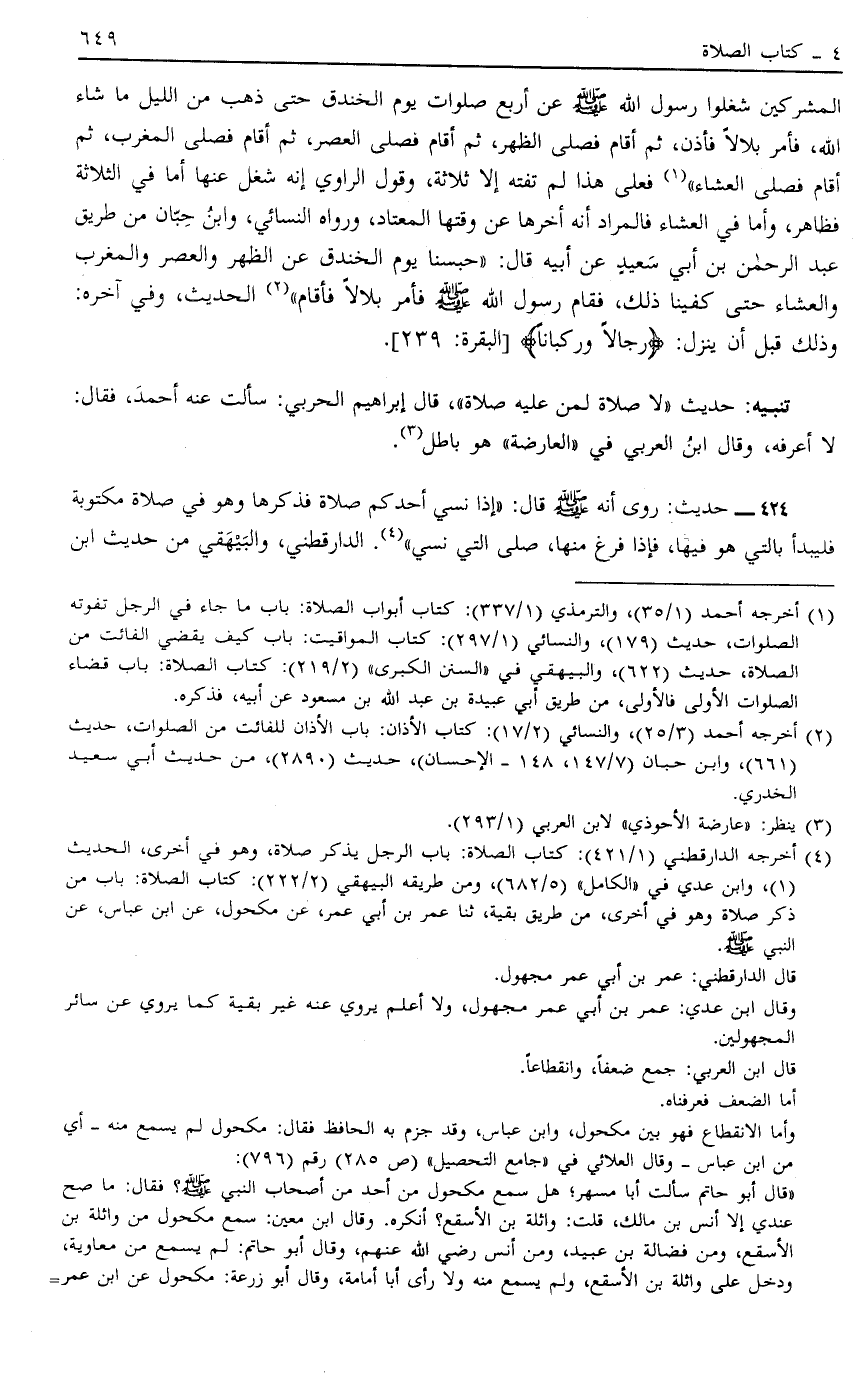 ٤ ـ كتاب الصلاة
٦٤٩
المشركين شغلوا رسول الله ﷺ عن أربع صلوات يوم الخندق حتى ذهب من الليل ما شاء
الله، فأمر بلالاً فأذن، ثم أقام فصلى الظهر، ثم أقام فصلى العصر، ثم أقام فصلى المغرب، ثم
أقام فصلى العشاء»(١) فعلى هذا لم تفته إلا ثلاثة، وقول الراوي إنه شغل عنها أما في الثلاثة
فظاهر، وأما في العشاء فالمراد أنه أخرها عن وقتها المعتاد، ورواه النسائي، وابنُ حِبّان من طريق
عبد الرحمٰن بن أبي سَعيدٍ عن أبيه قال: «حبسنا يوم الخندق عن الظهر والعصر والمغرب
والعشاء حتى كفينا ذلك، فقام رسول الله ﷺ فأمر بلالاً فأقام»(٢) الحديث، وفي آخره:
وذلك قبل أن ينزل: ﴿رجالاً وركباناً﴾ [البقرة: ٢٣٩].
تنبيه: حديث «لا صلاة لمن عليه صلاة»، قال إبراهيم الحربي: سألت عنه أحمدَ، فقال:
لا أعرفه، وقال ابنُ العربي في «العارضة» هو باطل(٣).
٤٢٤ ـ حديث: روى أنه ﷺ قال: «إذا نسي أحدكم صلاة فذكرها وهو في صلاة مكتوبة
فليبدأ بالتي هو فيها، فإذا فرغ منها، صلى التي نسي»(٤). الدارقطني، والبَيْهَقي من حديث ابن
(١) أخرجه أحمد (٣٥/١)، والترمذي (٣٣٧/١): كتاب أبواب الصلاة: باب ما جاء في الرجل تفوته
الصلوات، حديث (١٧٩)، والنسائي (٢٩٧/١): كتاب المواقيت: باب كيف يقضي الفائت من
الصلاة، حديث (٦٢٢)، والبيهقي في «السنن الكبرى» (٢١٩/٢): كتاب الصلاة: باب قضاء
الصلوات الأولى فالأولى، من طريق أبي عبيدة بن عبد الله بن مسعود عن أبيه، فذكره.
(٢) أخرجه أحمد (٢٥/٣)، والنسائي (١٧/٢): كتاب الأذان: باب الأذان للفائت من الصلوات، حديث
(٦٦١)، وابن حبان (١٤٧/٧، ١٤٨ ـ الإحسان)، حديث (٢٨٩٠)، من حديث أبي سعيد
الخدري.
(٣) ينظر: «عارضة الأحوذي» لابن العربي (٢٩٣/١).
(٤) أخرجه الدارقطني (٤٢١/١): كتاب الصلاة: باب الرجل يذكر صلاة، وهو في أخرى، الحديث
(١)، وابن عدي في «الكامل» (٦٨٢/٥)، ومن طريقه البيهقي (٢٢٢/٢): كتاب الصلاة: باب من
ذكر صلاة وهو في أخرى، من طريق بقية، ثنا عمر بن أبي عمر، عن مكحول، عن ابن عباس، عن
النبي ﷺ.
قال الدارقطني: عمر بن أبي عمر مجهول.
وقال ابن عدي: عمر بن أبي عمر مجهول، ولا أعلم يروي عنه غير بقية كما يروي عن سائر
المجهولين.
قال ابن العربي: جمع ضعفاً، وانقطاعاً.
أما الضعف فعرفناه.
وأما الانقطاع فهو بين مكحول، وابن عباس، وقد جزم به الحافظ فقال: مكحول لم يسمع منه ـ أي
من ابن عباس ـ وقال العلائي في «جامع التحصيل» (ص ٢٨٥) رقم (٧٩٦):
«قال أبو حاتم سألت أبا مسهر؛ هل سمع مكحول من أحد من أصحاب النبي ﷺ؟ فقال: ما صح
عندي إلا أنس بن مالك، قلت: واثلة بن الأسقع؟ أنكره. وقال ابن معين: سمع مكحول من واثلة بن
الأسقع، ومن فضالة بن عبيد، ومن أنس رضي الله عنهم، وقال أبو حاتم: لم يسمع من معاوية،
ودخل على واثلة بن الأسقع، ولم يسمع منه ولا رأى أبا أمامة، وقال أبو زرعة: مكحول عن ابن عمر=